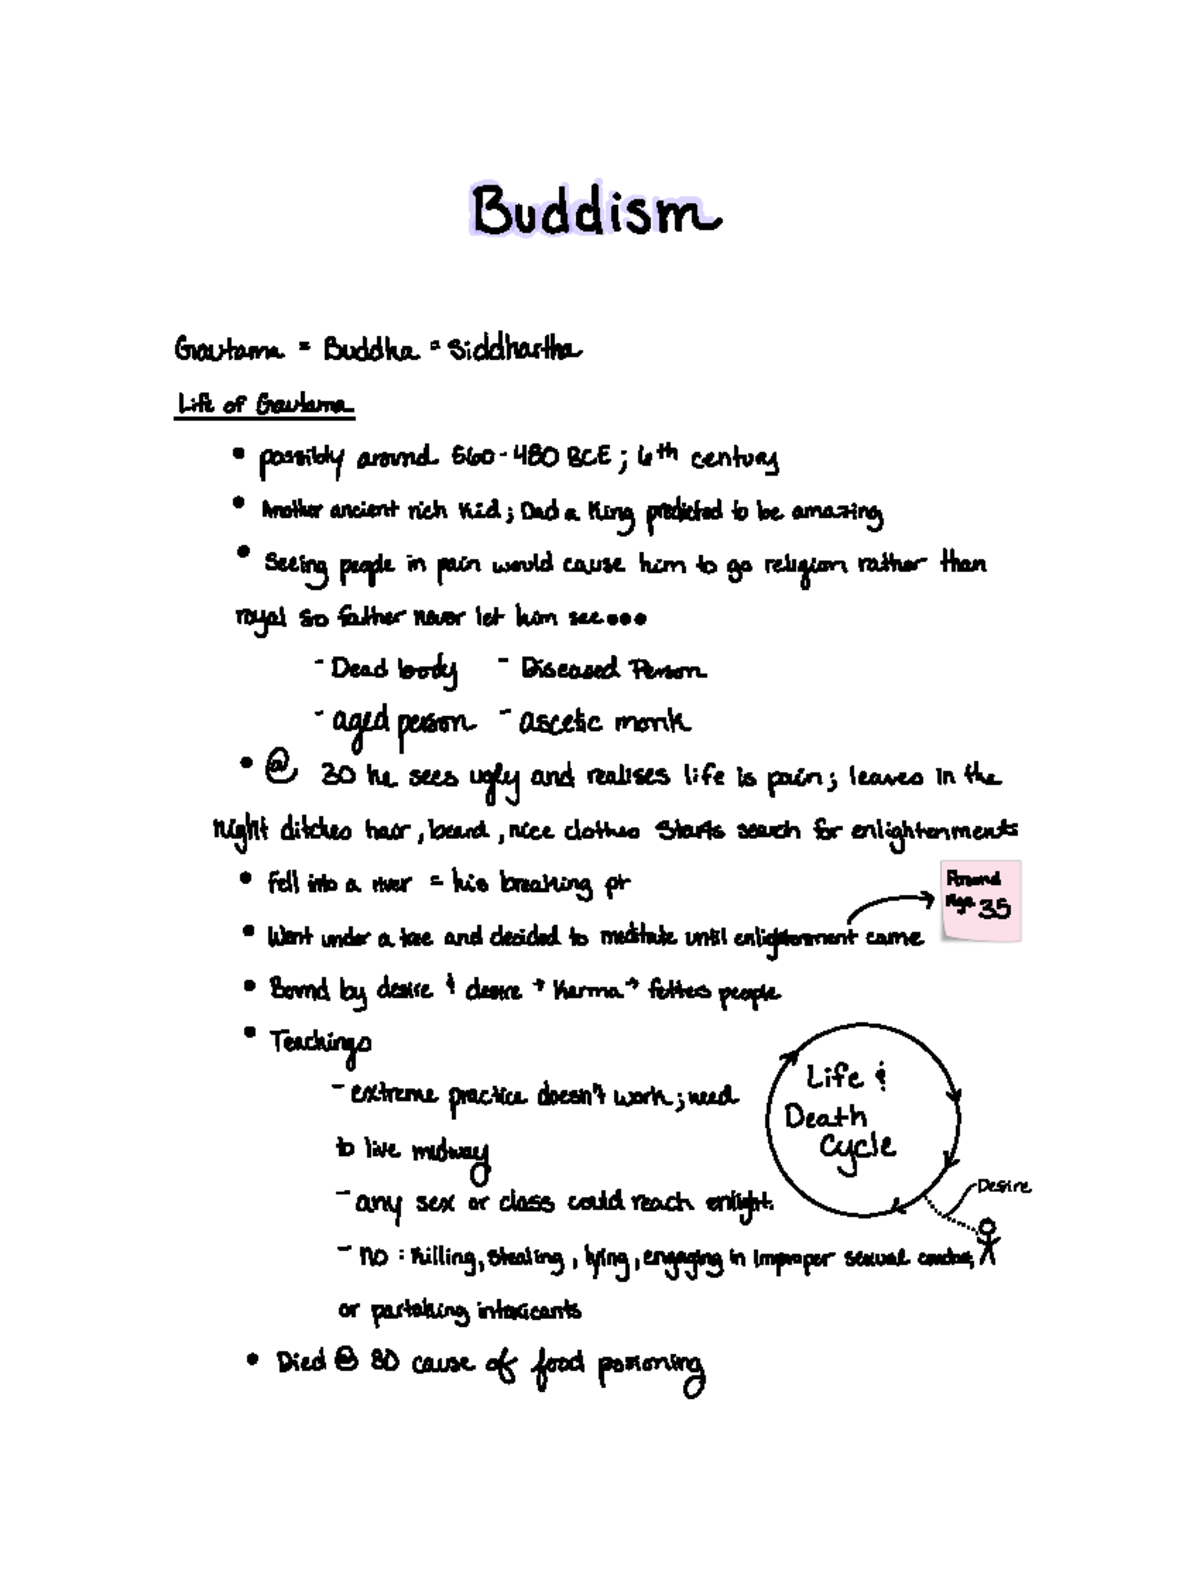 Buddism
Gautama = Buddha = Siddhartha
Life of Gautama
• possibly around 560-480 BCE ; 6th century
• Another ancient rich kid ; Dad a King predicted to be amazing
• Seeing people in pain would cause him to go religion rather than
royal so father never let him see...
- Dead body - Diseased Person
- aged person - ascetic monk
• @ 30 he sees ugly and realises life is pain ; leaves in the
night ditches hair, beard, nice clothes starts search for enlightenments
• Fell into a river = his breaking pt
Around
Age 35
• Went under a tree and decided to meditate until enlightenment came
• Bound by desire & desire → Karma → fetters people
• Teachings
- extreme practice doesn't work ; need
to live midway
Life &
Death
Cycle
Desire
- any sex or class could reach enlight.
- no : killing, stealing, lying, engaging in improper sexual
or partaking intoxicants
• Died @ 80 cause of food poisioning